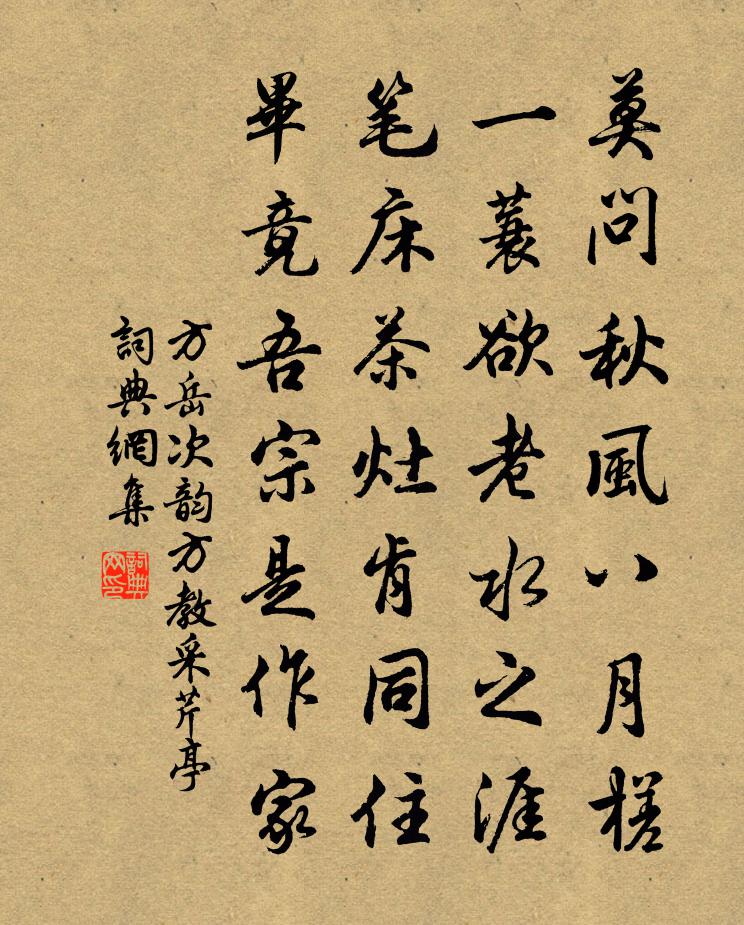 莫問秋風八月槎
一蓑欲老水之涯
笔床茶灶肯同住
畢竟吾宗是作家
方岳次韵方教采芹亭
詞典網集
詞典网印